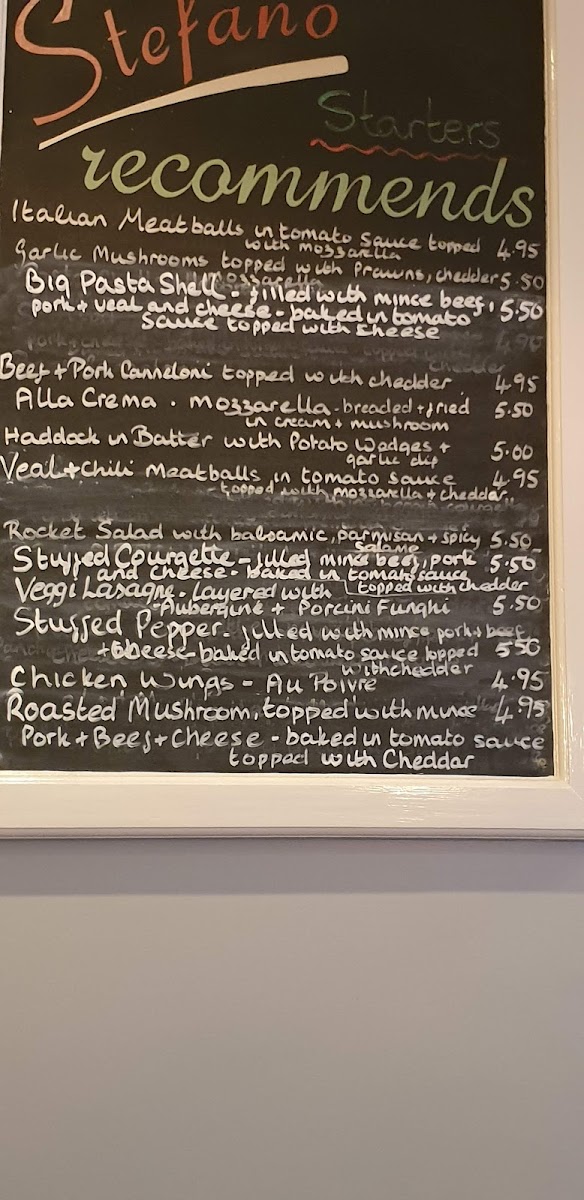 Stefano
Starters
recommends
Italian Meatballs in tomato sauce topped 4.95
with mozzarella
Garlic Mushrooms topped with Prawns, chedder 5.50
mozzarella
Big Pasta Shell - filled with mince beef, 5.50
pork + veal and cheese - baked in tomato
sauce topped with cheese
Beef + Pork Canneloni topped with chedder 4.95
Alla Crema . mozzarella - breaded + fried 5.50
in cream + mushroom
Haddock in Batter with Potato Wadges + 5.00
garlic dip
Veal + Chili Meatballs in tomato sauce 4.95
- topped with mozzarella + chedder.
Rocket Salad with balsamic, parmisan + spicy 5.50
Salame
Stuffed Courgette - filled mince beef, pork 5.50
and cheese - baked in tomato sauce
Veggi Lasagne - layered with topped with chedder
Aubergine + Porcini Funghi 5.50
Stuffed Pepper - filled with mince pork + beef
+ cheese - baked in tomato sauce topped 5.50
with chedder
Chicken Wings - Au Poivre 4.95
Roasted Mushroom, topped with mince 4.95
Pork + Beef + Cheese - baked in tomato sauce
topped with Cheddar